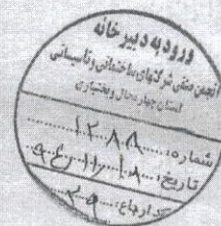 ورود به دبیرخانه
انجمن صنفی شرکتهای ساختمانی و تأسیساتی
استان چهارمحال و بختیاری
شماره: ۱۲۸۸
تاریخ: ۹۴/۱۱/۱۸
کد ارجاع: ۲۹